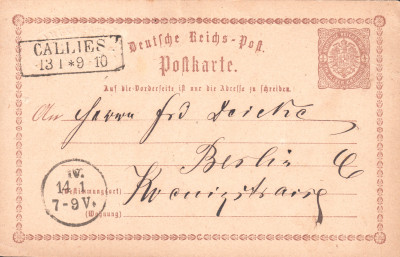 CALLIES
13 1 * 9-10
Deutsche Reichs-Post.
Postkarte.
Auf die Vorderseite ist nur die Adresse zu schreiben.
An Herrn Frd Doicke
Berlin C
(Bestimmungsort)
IV.
14 1
7-9 V.
(Wohnung)